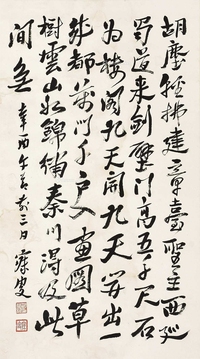 胡塵輕拂建章臺聖主西巡
蜀道來劍壁門高五千尺石
為樓閣九天開九天開出一
成都萬門千戶入畫圖草
樹雲山如錦繡秦川得及此
間無
辛酉午節前三日 寐叟